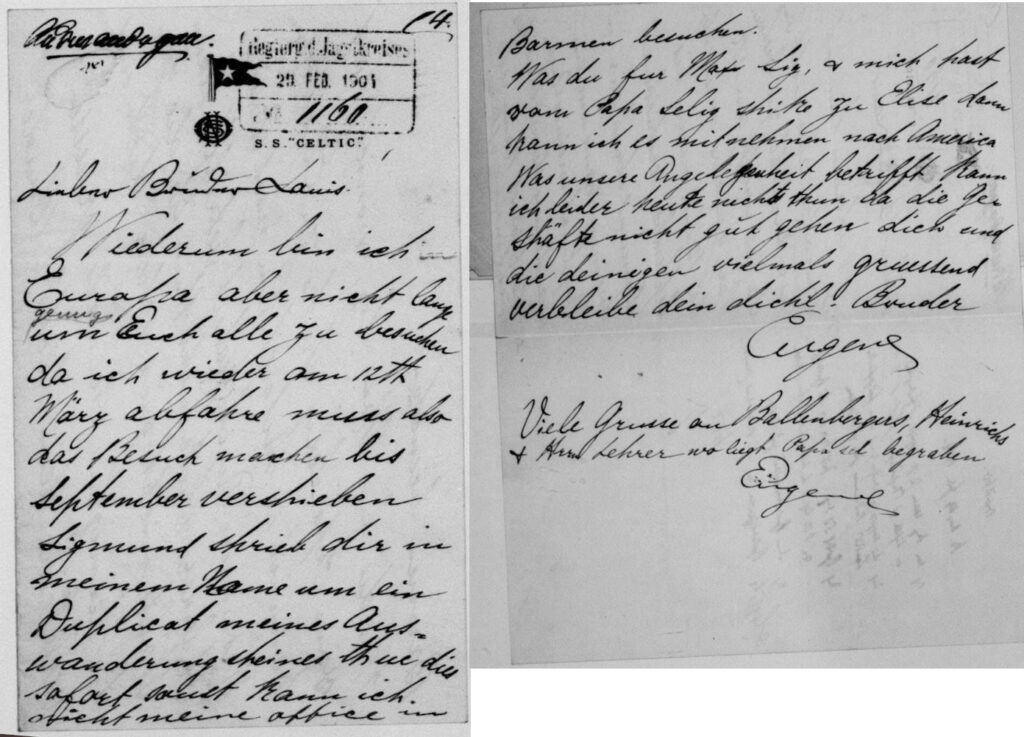 14.
Regierg. d. Jagstkreises
29. FEB. 1904
1160
S.S. "CELTIC".
Lieber Bruder Louis.
Wiederum bin ich in
Europa aber nicht lange
genug
um Euch alle zu besuchen
da ich wieder am 12th
März abfahre muss also
das Besuch machen bis
September vershieben
Sigmund shrieb dir in
meinem Name um ein
Duplicat meines Aus=
wanderungsheines thue dies
sofort sonst kann ich
nicht meine office in
Barmen besuchen.
Was du fur Max Sig, & mich hast
vom Papa Selig shike zu Elise dann
kann ich es mitnehmen nach America
Was unsere Angelegenheit betrifft kann
ich leider heute nichts thun da die Ge-
shäfte nicht gut gehen dich und
die deinigen vielmals gruessend
verbleibe dein dichl. Bruder
Eugene
Viele Grusse an Ballenbergers, Heinrichs
& Hrn Lehrer wo liegt Papa sel begraben
Eugene